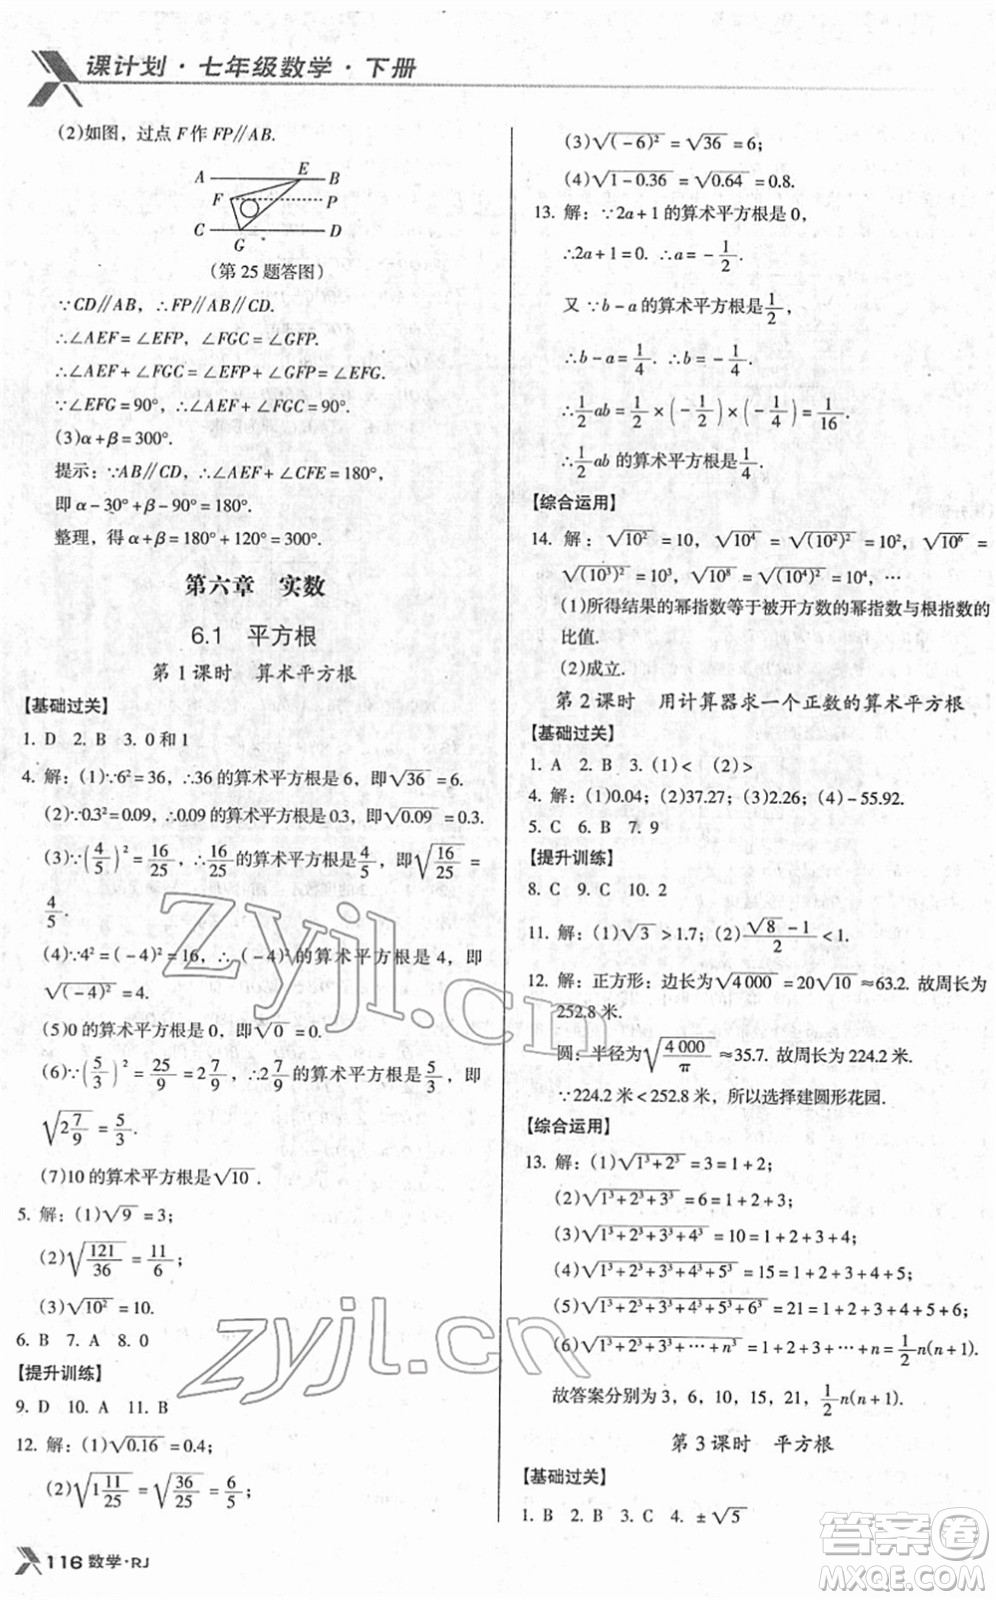 课计划·七年级数学·下册
(2)如图，过点 F 作 FP∥AB.
A E B
F P
C G D
(第 25 题答图)
∵CD∥AB，∴FP∥AB∥CD.
∴∠AEF=∠EFP，∠FGC=∠GFP.
∴∠AEF+∠FGC=∠EFP+∠GFP=∠EFG.
∵∠EFG=90°，∴∠AEF+∠FGC=90°.
(3)α+β=300°.
提示：∵AB∥CD，∴∠AEF+∠CFE=180°，
即 α-30°+β-90°=180°.
整理，得 α+β=180°+120°=300°.
第六章 实数
6.1 平方根
第 1 课时 算术平方根
【基础过关】
1. D 2. B 3. 0 和 1
4. 解：(1)∵6²=36，∴36 的算术平方根是 6，即√36=6.
(2)∵0.3²=0.09，∴0.09 的算术平方根是 0.3，即√0.09=0.3.
(3)∵(4/5)²=16/25，∴16/25的算术平方根是4/5，即√(16/25)=
4/5.
(4)∵4²=(-4)²=16，∴(-4)²的算术平方根是 4，即
√(-4)²=4.
(5)0 的算术平方根是 0，即√0=0.
(6)∵(5/3)²=25/9=2 7/9，∴2 7/9的算术平方根是5/3，即
√(2 7/9)=5/3.
(7)10 的算术平方根是√10.
5. 解：(1)√9=3；
(2)√(121/36)=11/6；
(3)√10²=10.
6. B 7. A 8. 0
【提升训练】
9. D 10. A 11. B
12. 解：(1)√0.16=0.4；
(2)√(1 11/25)=√(36/25)=6/5；
116 数学·RJ
(3)√(-6)²=√36=6；
(4)√(1-0.36)=√0.64=0.8.
13. 解：∵2a+1 的算术平方根是 0，
∴2a+1=0. ∴a=-1/2.
又 ∵b-a 的算术平方根是1/2，
∴b-a=1/4. ∴b=-1/4.
∴1/2ab=1/2×(-1/2)×(-1/4)=1/16.
∴1/2ab 的算术平方根是1/4.
【综合运用】
14. 解：√10²=10，√10⁴=√(10²)²=10²，√10⁶=
√(10³)²=10³，√10⁸=√(10⁴)²=10⁴，…
(1)所得结果的幂指数等于被开方数的幂指数与根指数的
比值.
(2)成立.
第 2 课时 用计算器求一个正数的算术平方根
【基础过关】
1. A 2. B 3. (1)< (2)>
4. 解：(1)0.04；(2)37.27；(3)2.26；(4)-55.92.
5. C 6. B 7. 9
【提升训练】
8. C 9. C 10. 2
11. 解：(1)√3>1.7；(2)(√8-1)/2<1.
12. 解：正方形：边长为√4 000=20√10≈63.2. 故周长为
252.8 米.
圆：半径为√(4 000/π)≈35.7. 故周长为 224.2 米.
∵224.2 米<252.8 米，所以选择建圆形花园.
【综合运用】
13. 解：(1)√(1³+2³)=3=1+2；
(2)√(1³+2³+3³)=6=1+2+3；
(3)√(1³+2³+3³+4³)=10=1+2+3+4；
(4)√(1³+2³+3³+4³+5³)=15=1+2+3+4+5；
(5)√(1³+2³+3³+4³+5³+6³)=21=1+2+3+4+5+6；
(6)√(1³+2³+3³+4³+…+n³)=1+2+3+4+…+n=1/2n(n+1).
故答案分别为 3，6，10，15，21，1/2n(n+1).
第 3 课时 平方根
【基础过关】
1. B 2. B 3. C 4. ±√5
zyjl.cn
zyjl.cn
答案圈
MXQE.COM